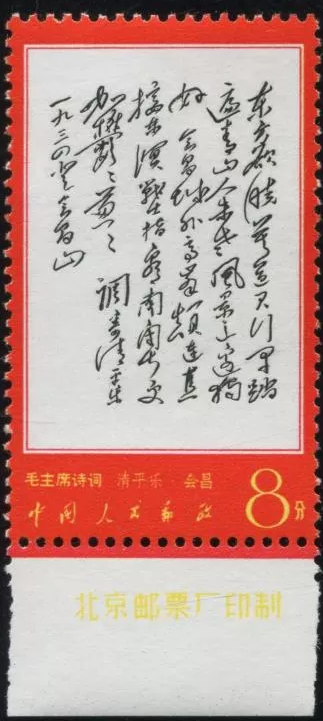 东方欲晓莫道君行早踏
遍青山人未老风景这边独
好会昌城外高峰颠连直
接东溟战士指看南粤更
加鬱〻葱〻
調寄清平乐
一九三四登会昌山
毛主席诗词 清平乐·会昌
中国人民邮政
8分
北京邮票厂印制